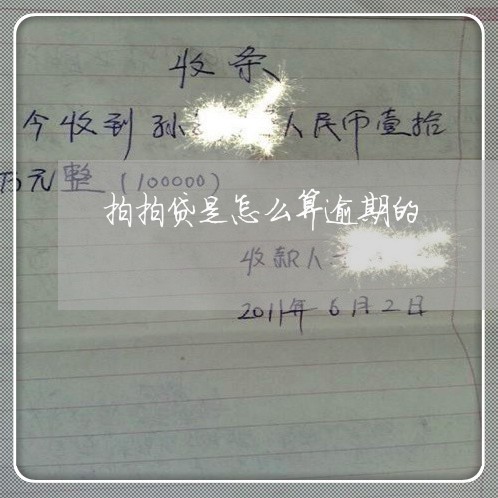 收条
今收到孙 人民币壹拾
万元整（100000）
拍拍贷是怎么算逾期的
收款人
2011年6月2日